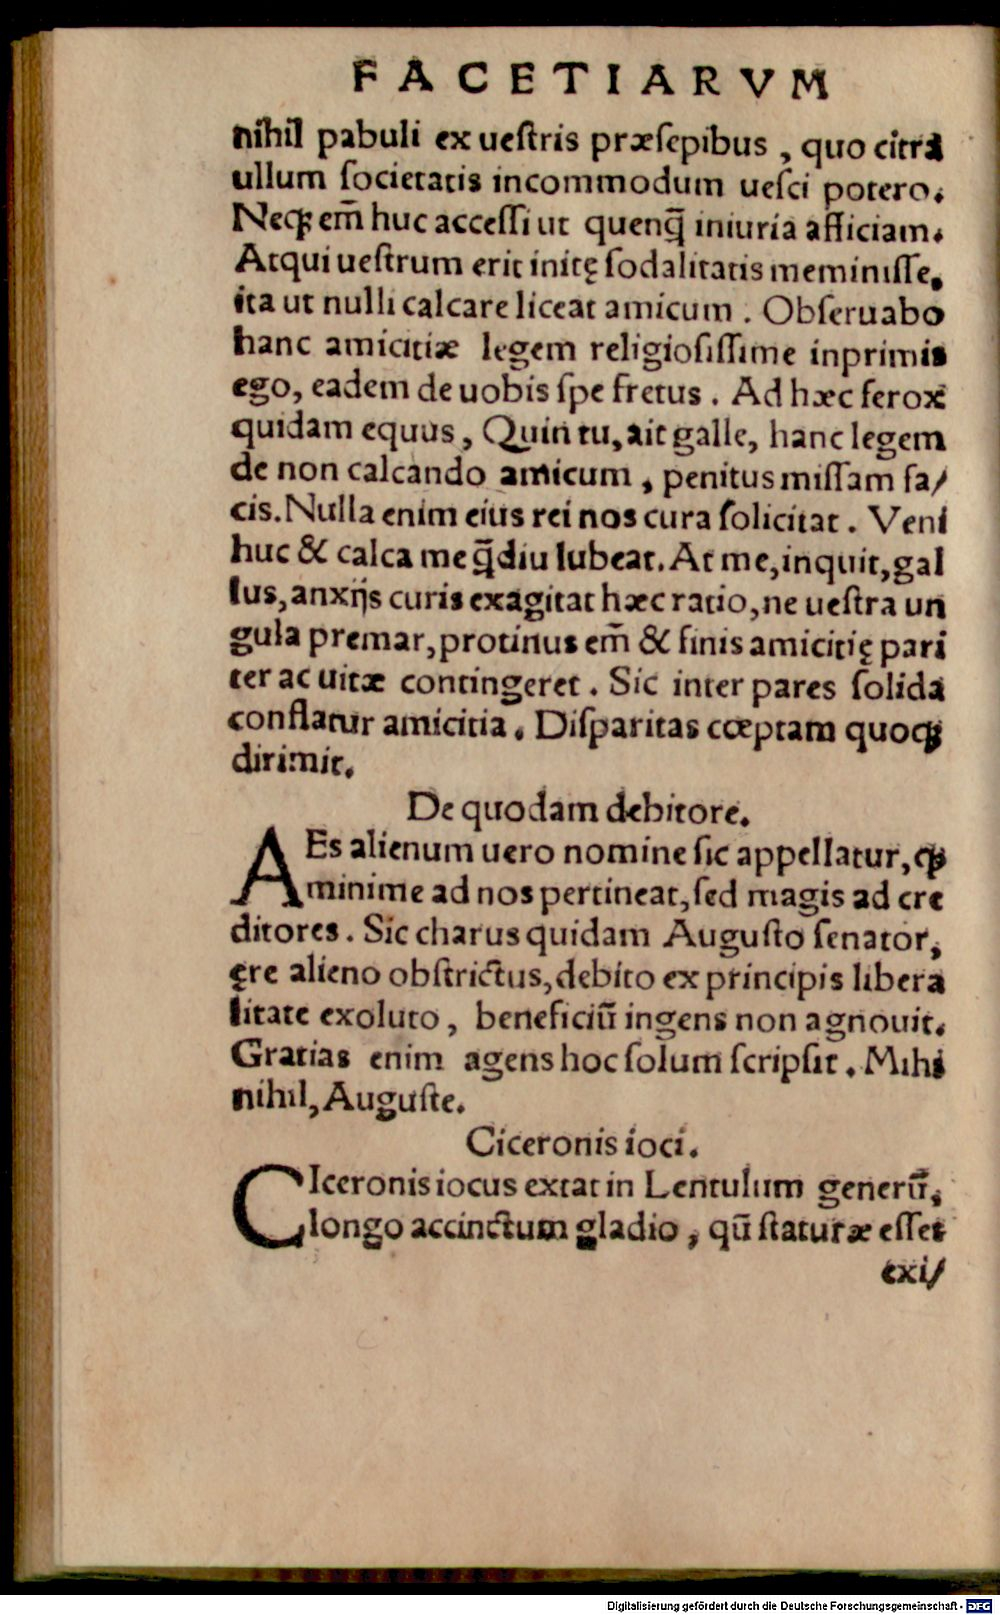 FACETIARVM
nihil pabuli ex ueſtris præſepibus , quo citra
ullum ſocietatis incommodum ueſci potero.
Neqꝫ em̃ huc acceſſi ut quenq̃ iniuria afficiam.
Atqui ueſtrum erit initę ſodalitatis meminiſſe,
ita ut nulli calcare liceat amicum . Obſeruabo
hanc amicitiæ legem religioſiſſime inprimis
ego, eadem de uobis ſpe fretus . Ad hæc ferox
quidam equus, Quin tu, ait galle, hanc legem
de non calcando amicum , penitus miſſam fa/
cis. Nulla enim eius rei nos cura ſolicitat . Veni
huc & calca me q̃diu lubeat. At me, inquit, gal
lus, anxijs curis exagitat hæc ratio, ne ueſtra un
gula premar, protinus em̃ & finis amicitię pari
ter ac uitæ contingeret . Sic inter pares ſolida
conflatur amicitia. Diſparitas cœptam quoqꝫ
dirimit.
De quodam debitore.
AEs alienum uero nomine ſic appellatur, ꝙ
minime ad nos pertineat, ſed magis ad cre
ditores . Sic charus quidam Auguſto ſenator,
ęre alieno obſtrictus, debito ex principis libera
litate exoluto , beneficiũ ingens non agnouit.
Gratias enim agens hoc ſolum ſcripſit . Mihi
nihil, Auguſte.
Ciceronis ioci.
CIceronis iocus extat in Lentulum generũ,
longo accinctum gladio , qũ ſtaturæ eſſet
exi/
Digitalisierung gefördert durch die Deutsche Forschungsgemeinschaft - DFG